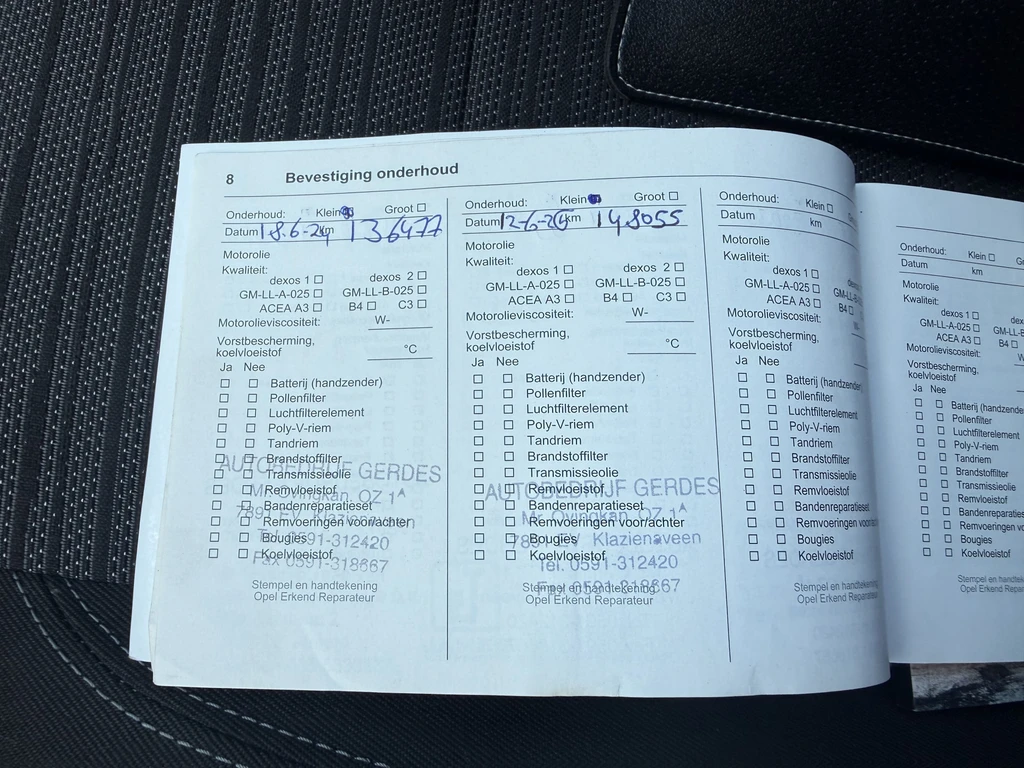 8 Bevestiging onderhoud
Onderhoud: Klein Groot
Datum 18-6-24 km 136477
Motorolie
Kwaliteit:
dexos 1 dexos 2
GM-LL-A-025 GM-LL-B-025
ACEA A3 B4 C3
Motorolieviscositeit: W-
Vorstbescherming,
koelvloeistof °C
Ja Nee
Batterij (handzender)
Pollenfilter
Luchtfilterelement
Poly-V-riem
Tandriem
Brandstoffilter
Transmissieolie
Remvloeistof
Bandenreparatieset
Remvoeringen voor/achter
Bougies
Koelvloeistof
AUTOBEDRIJF GERDES
Mr. Ovingkan. OZ 1A
7891 EV Klazienaveen
Tel. 0591-312420
Fax 0591-318667
Stempel en handtekening
Opel Erkend Reparateur
Onderhoud: Klein Groot
Datum 12-6- km 148055
Motorolie
Kwaliteit:
dexos 1 dexos 2
GM-LL-A-025 GM-LL-B-025
ACEA A3 B4 C3
Motorolieviscositeit: W-
Vorstbescherming,
koelvloeistof °C
Ja Nee
Batterij (handzender)
Pollenfilter
Luchtfilterelement
Poly-V-riem
Tandriem
Brandstoffilter
Transmissieolie
Remvloeistof
Bandenreparatieset
Remvoeringen voor/achter
Bougies
Koelvloeistof
AUTOBEDRIJF GERDES
Mr. Ovingkan. OZ 1A
7891 EV Klazienaveen
Tel. 0591-312420
Fax 0591-318667
Stempel en handtekening
Opel Erkend Reparateur
Onderhoud: Klein
Datum km
Motorolie
Kwaliteit:
dexos 1
GM-LL-A-025 GM-LL-B
ACEA A3 B4
Motorolieviscositeit: W-
Vorstbescherming,
koelvloeistof
Ja Nee
Batterij (handzender
Pollenfilter
Luchtfilterelement
Poly-V-riem
Tandriem
Brandstoffilter
Transmissieolie
Remvloeistof
Bandenreparatieset
Remvoeringen voor/
Bougies
Koelvloeistof
Stempel en handtekening
Opel Erkend Reparateur
Onderhoud: Klein
Datum km
Motorolie
Kwaliteit:
dexos 1 dex
GM-LL-A-025 GM-LL-B
ACEA A3 B4
Motorolieviscositeit: W-
Vorstbescherming,
koelvloeistof
Ja Nee
Batterij (handzende
Pollenfilter
Luchtfilterelement
Poly-V-riem
Tandriem
Brandstoffilter
Transmissieolie
Remvloeistof
Bandenreparaties
Remvoeringen vo
Bougies
Koelvloeistof
Stempel en handtekening
Opel Erkend Reparateur